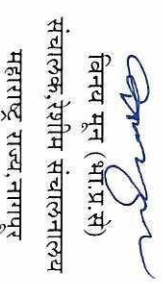 विनय मून (भा.प्र.से)
संचालक,रेशीम संचालनालय
महाराष्ट्र राज्य,नागपूर